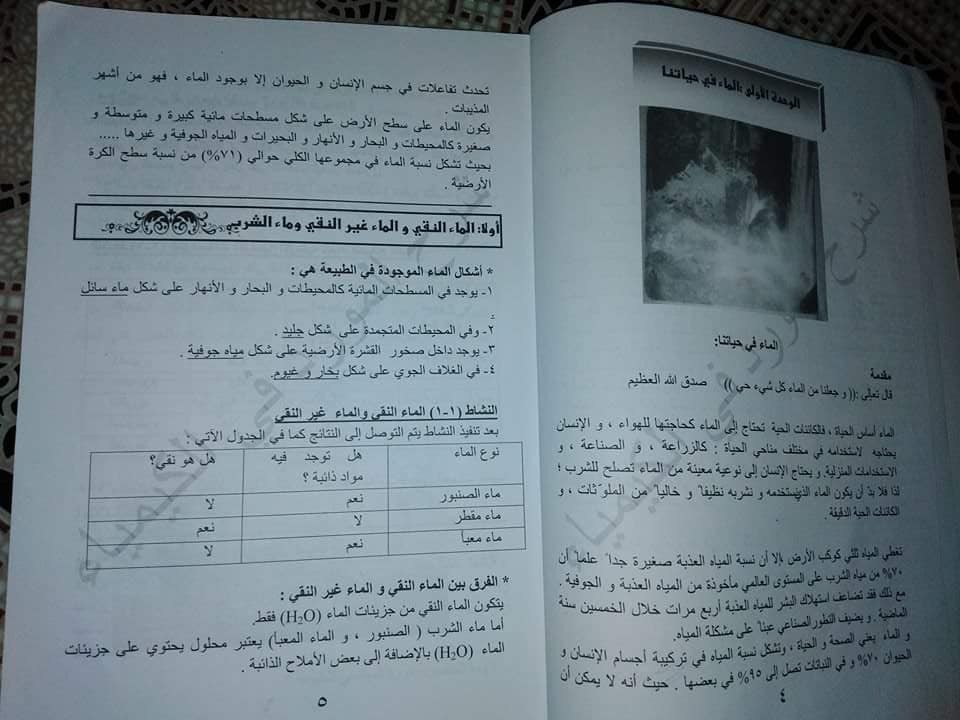 الوحدة الأولى :الماء في حياتنا
الماء في حياتنا:
مقدمة
قال تعالى :(( و جعلنا من الماء كل شيء حي )) صدق الله العظيم
الماء أساس الحياة ، فالكائنات الحية تحتاج إلى الماء كحاجتها للهواء ، و الإنسان
يحتاجه لاستخدامه في مختلف مناحي الحياة : كالزراعة ، و الصناعة ، و
الاستخدامات المنزلية. و يحتاج الإنسان إلى نوعية معينة من الماء تصلح للشرب ؛
لذا فلا بدّ أن يكون الماء الذي نستخدمه و نشربه نظيفاً و خالياً من الملوّثات ، و
الكائنات الحية الدقيقة .
تغطي المياه ثلثي كوكب الأرض إلا أن نسبة المياه العذبة صغيرة جداً علماً أن
٧٠% من مياه الشرب على المستوى العالمي مأخوذة من المياه العذبة و الجوفية .
مع ذلك فقد تضاعف استهلاك البشر للمياه العذبة أربع مرات خلال الخمسين سنة
الماضية . و يضيف التطور الصناعي عبئاً على مشكلة المياه.
و الماء يعني الصحة و الحياة ، وتشكل نسبة المياه في تركيبة أجسام الإنسان و
الحيوان ٧٠% و في النباتات تصل إلى ٩٥% في بعضها . حيث أنه لا يمكن أن
٤
تحدث تفاعلات في جسم الإنسان و الحيوان إلا بوجود الماء ، فهو من أشهر
المذيبات .
يكون الماء على سطح الأرض على شكل مسطحات مائية كبيرة و متوسطة و
صغيرة كالمحيطات و البحار و الأنهار و البحيرات و المياه الجوفية و غيرها .....
بحيث تشكل نسبة الماء في مجموعها الكلي حوالي (٧١%) من نسبة سطح الكرة
الأرضية .
أولا: الماء النقي و الماء غير النقي وماء الشرب
* أشكال الماء الموجودة في الطبيعة هي :
١- يوجد في المسطحات المائية كالمحيطات و البحار و الأنهار على شكل ماء سائل
.
٢- وفي المحيطات المتجمدة على شكل جليد .
٣- يوجد داخل صخور القشرة الأرضية على شكل مياه جوفية .
٤- في الغلاف الجوي على شكل بخار و غيوم.
النشاط (١-١) الماء النقي والماء غير النقي
بعد تنفيذ النشاط يتم التوصل إلى النتائج كما في الجدول الآتي :
نوع الماء هل توجد فيه هل هو نقي؟
مواد ذائبة ؟
ماء الصنبور نعم لا
ماء مقطر لا نعم
ماء معبأ نعم لا
* الفرق بين الماء النقي و الماء غير النقي :
يتكون الماء النقي من جزيئات الماء (H₂O) فقط.
أما ماء الشرب ( الصنبور ، و الماء المعبأ) يعتبر محلول يحتوي على جزيئات
الماء (H₂O) بالإضافة إلى بعض الأملاح الذائبة .
٥